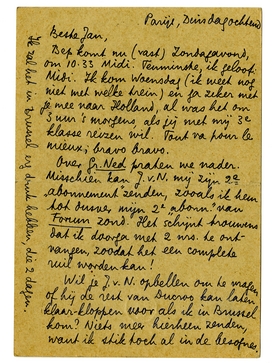 Parijs, Dinsdagochtend
Beste Jan,
Bep komt nu (vast) Zondagavond,
om 10.33 Midi. Tenminste, ik geloof:
Midi. Ik kom Woensdag (ik weet nog
niet met welke trein) en ga zeker met
je mee naar Holland, al was het om
3 uur 's morgens, als jij met mij 3e
klasse reizen wil. Tout va pour le
mieux; bravo bravo.
Over Gr. Ned praten we nader.
Misschien kan J.v.N. mij zijn 2e
"abonnement" zenden, zooals ik hem
tot dusver mijn 2e "abonn." van
Forum zond. Het schijnt trouwens
dat ik doorga met 2 nrs. te ont-
vangen, zoodat het een complete
ruil worden kan!
Wil je J.v.N. opbellen om te vragen
of hij de rest van Ducroo kan laten
klaar-kloppen voor als ik in Brussel
kom? Niets meer hierheen zenden,
want ik stik toch al in de besognes.
Ik zal het in Brussel erg druk hebben, die 2 dagen.